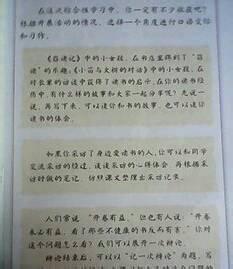 在这次综合性学习中，你一定有不少收获吧？
根据开展活动的情况，选择一个角度进行口语交际
和习作。
《窃读记》中的小女孩，在书店里得到了“窃
读”的乐趣，《小苗与大树的对话》中的小苗，在
对长辈的访谈中获得了读书的启示。在你的读书经历
中，有什么样的故事和大家一起分享呢？先说一
说，再写下来。可以谈你和书的故事，也可以谈你
读书的体会。
如果你采访了身边爱读书的人，你可以和同学
交流采访的经过，谈谈采访的心得体会，再根据采
访时做的笔记，仿照课文整理采访记录。
人们常说“开卷有益。”但也有人说：“开卷
未必有益，看了那些不健康的书反而有害。”你对
这个问题怎么看？我们可以展开一次辩论。
辩论结束后，可以以“记一次辩论”为题，写